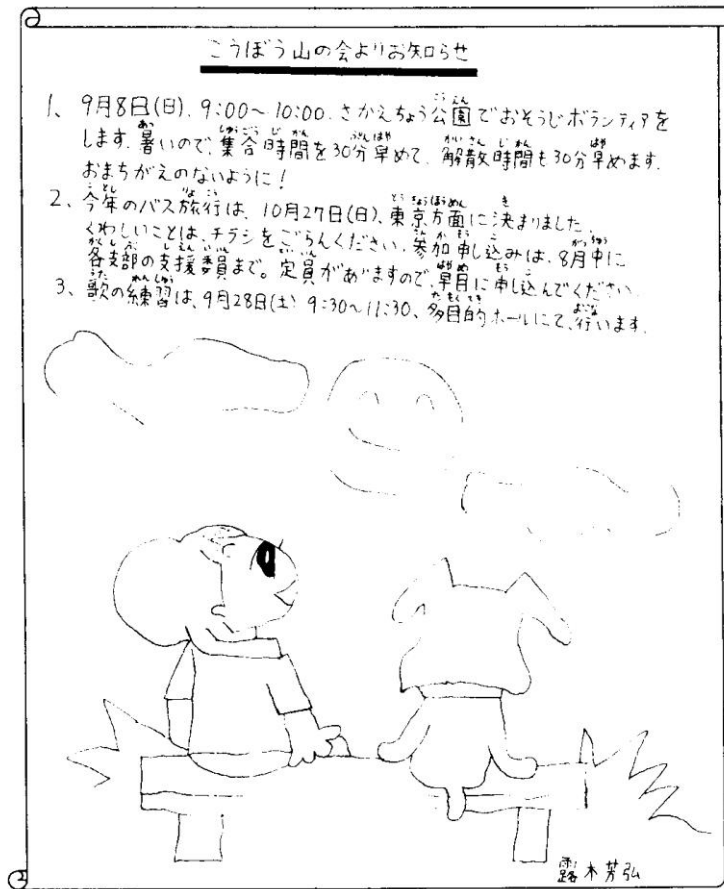 こうぼう山の会よりお知らせ
1、9月8日(日)、9:00～10:00、さかえちょう公園でおそうじボランティアを
します。暑いので、集合時間を30分早めて、解散時間も30分早めます。
おまちがえのないように!
2、今年のバス旅行は、10月27日(日)、東京方面に決まりました。
くわしいことは、チラシをごらんください。参加申し込みは、8月中に
各支部の支援委員まで。定員がありますので、早目に申し込んでください。
3、歌の練習は、9月28日(土) 9:30～11:30、多目的ホールにて、行います。
露木芳弘